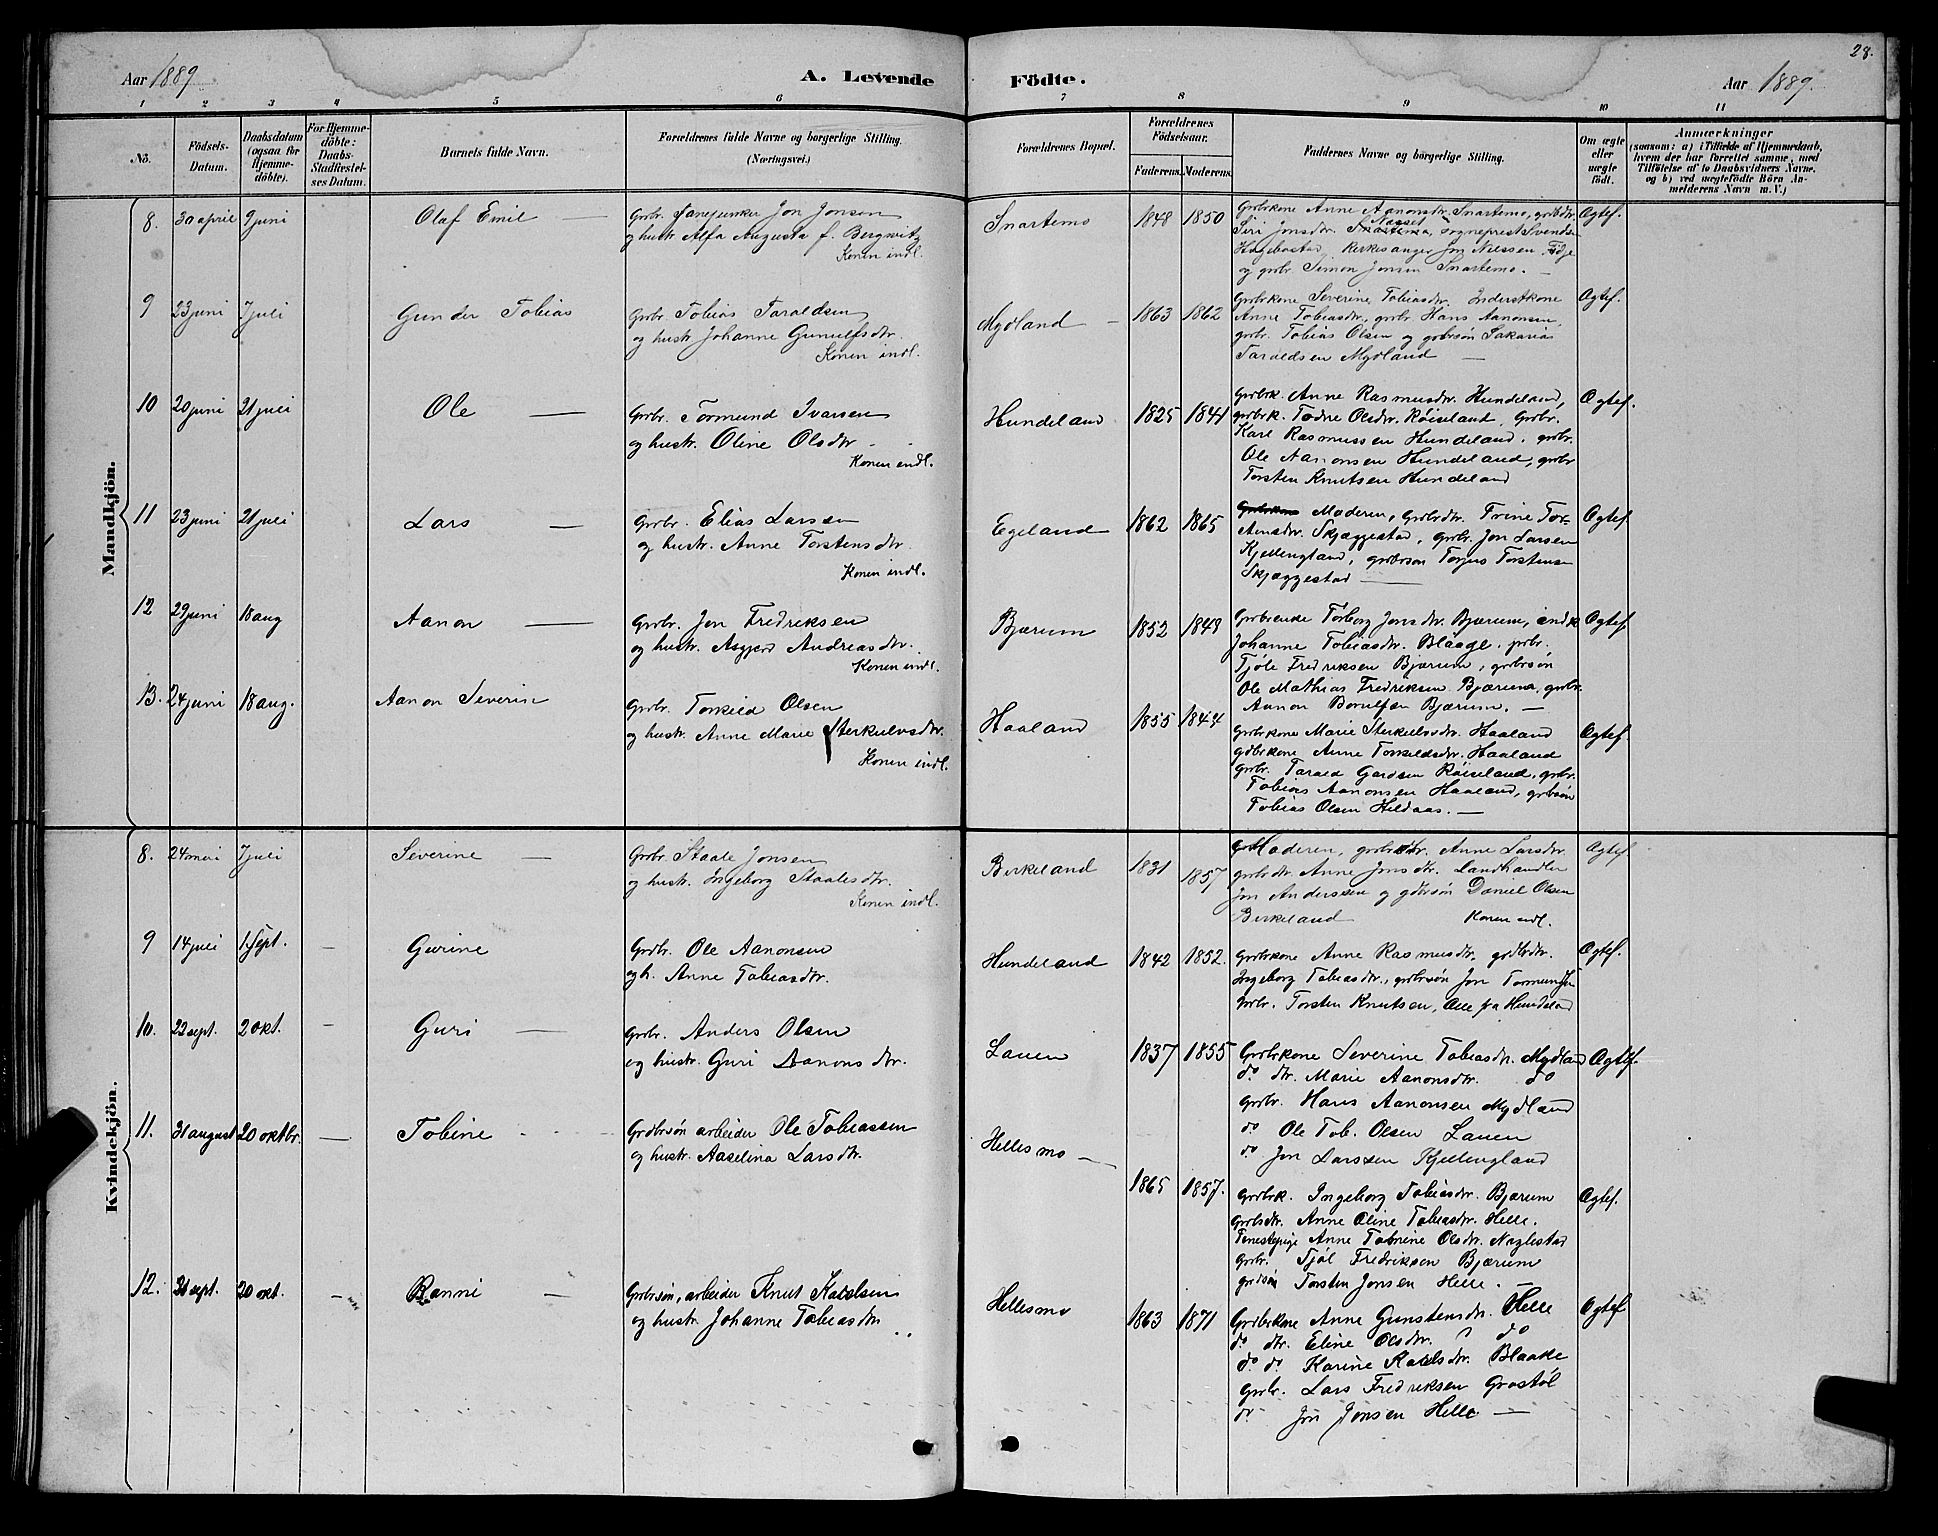 28.
Aar 1889 A. Levende Födte. Aar 1889.
1 2 3 4 5 6 7 8 9 10 11
No. Födsels-Datum. Daabsdatum (ogsaa for Hjemme-döbte). For Hjemme-döbte: Daabs-Stadfæstel-ses Datum. Barnets fulde Navn. Forældrenes fulde Navne og borgerlige Stilling. (Næringsvei.) Forældrenes Bopæl. Forældrenes Födselsaar. Faderens. Moderens. Faddernes Navne og borgerlige Stilling. Om ægte eller uægte födt. Anmærkninger (saasom: a) i Tilfælde af Hjemmedaab, hvem der har forrettet samme, med Tilföielse af to Daabsvidners Navne. og b) ved uægtefödte Börn An-melderens Navn m. V.)
Mandkjön.
8. 30 april 9 juni Olaf Emil — Grbr. Jon Jonsen
og hustr. Alfa Augusta f. Bergwitz
Konen indl.
Snartemo 1848 1850 Grbrkone Anne Aanonsdtr. Snartemo, grbrdtr.
Siri Jonsdtr. Snartemo, sogneprest Svendsen
Hægebostad, kirkesanger Jon Nilssen
og grbr. Simon Jonsen Snartemo. —
Ægtef.
9 23 juni 7 juli Gunder Tobias Grbr. Tobias Taraldsen
og hustr. Johanne Gunulfsdtr.
Konen indl.
Mydland — 1863 1862 Grbrkone Severine Tobiasdtr. Inderstkone
Anne Tobiasdtr, grbr. Hans Aanonsen,
grbr. Tobias Olsen og grbrsön Sakarias
Taraldsen Mydland —
Ægtef.
10 20 juni 21 juli Ole — Grbr. Tormund Ivarsen
og hustr. Oline Olsdtr
Konen indl.
Hundeland 1825 1841 Grbrk. Anne Rasmusdtr. Hundeland,
grbrk. Todne Olsdtr. Röiseland, Grbr.
Karl Rasmussen Hundeland, grbr.
Ole Aanonsen Hundeland, grbr
Torsten Knutsen Hundeland
Ægtef.
11 23 juni 21 juli Lars — Grbr. Elias Larsen
og hustr. Anne Torstensdtr.
Konen indl.
Egeland 1862 1865 Grbrkone Moderen, Grbrdtr. Trine Tor-
stensdtr. Skjæggestad, grbr. Jon Larsen
Kjellingland, grbrsön Torjus Torstensen
Skjæggestad —
Ægtef.
12 29 juni 18 aug Aanon — Grbr. Jon Fredriksen
og hustr. Asgjerd Andreasdtr.
Konen indl.
Bjærum 1852 1848 Grbrenke Torborg Jonsdtr. Bjærum, indk
Johanne Tobiasdtr. Blaage, grbr.
Tjöle Fredriksen Bjærum, grbrsön
Ole Mathias Fredriksen Bjærum, grbr.
Aanon Bjærum. —
Ægtef
13. 24 juni 18 aug. Aanon Severin Grbr. Torkild Olsen
og hustr. Anne Marie Sterkulvsdtr.
Konen indl.
Haaland 1855 1844 Grbrkone Marie Sterkulvsdtr. Haaland
gdbrkone Anne Torkildsdtr. Haaland
grbr. Tarald Gardsen Röiseland, grbr.
Tobias Aanonsen Haaland, grbrsön
Tobias Olsen Hildaas. —
Ægtef.
Kvindekjön.
8. 24 mai 7 juli Severine — Grbr. Staale Jonsen
og hustr. Ingeborg Staalesdtr.
Konen indl.
Birkeland 1831 1857 Moderen, grbrdtr. Anne Larsdtr.
grbrdtr. Anne Jonsdtr. Landhandler
Jon Anderssen og gdbrsön Daniel Olsen
Birkeland Konen indl.
Ægtef
9 14 juli 1. Sept. — Gurine Grdbr. Ole Aanonsen
og h. Anne Tobiasdtr.
Hundeland 1842 1852. Grdbrkone Anne Rasmusdtr, grdbrdtr.
Ingeborg Tobiasdtr, grdbrsön Jon Tormundsen
Grbr. Torsten Knutsen, Alle fra Hundeland
Ægtef.
10. 22 sept. 2 okt. — Guri — Grdbr. Anders Olsen
og hustr. Guri Aanonsdtr.
Lauen 1837 1855 Grdbrkone Severine Tobiasdtr. Mydland
do. dtr. Marie Aanonsdtr. do
Grdbr. Hans Aanonsen Mydland
do Ole Tob. Olsen Lauen
do Jon Larssen Kjellingland
Ægtef.
11. 31 august 20 oktbr. — Tobine Grdbrsön arbeider Ole Tobiassen
og hustr. Aaselina Larsdtr.
Hellesmo — 1865 1857. Grdbrk. Ingeborg Tobiasdtr. Bjærum
Grdbrdtr. Anne Oline Tobiasdtr. Helle.
Tjenestepige Anne Tobine Olsdtr. Naglestad
Grdbr. Tjöl Fredriksen Bjærum
grdbrsön Torsten Jonsen Helle. —
Ægtef.
12. 21 sept. 20 okt. — Ranni — Grdbrsön, arbeider Knut Ka
og hustr. Johanne Tobiasdtr
Hellesmo 1863 1871 Grdbrkone Anne Gunstensdtr. Helle
do. dtr. Eline Olsdtr. do
do. do. Karine Blaake
Grdbr. Lars Fredriksen Grostöl
do Jon Jonsen Helle —
Ægtef